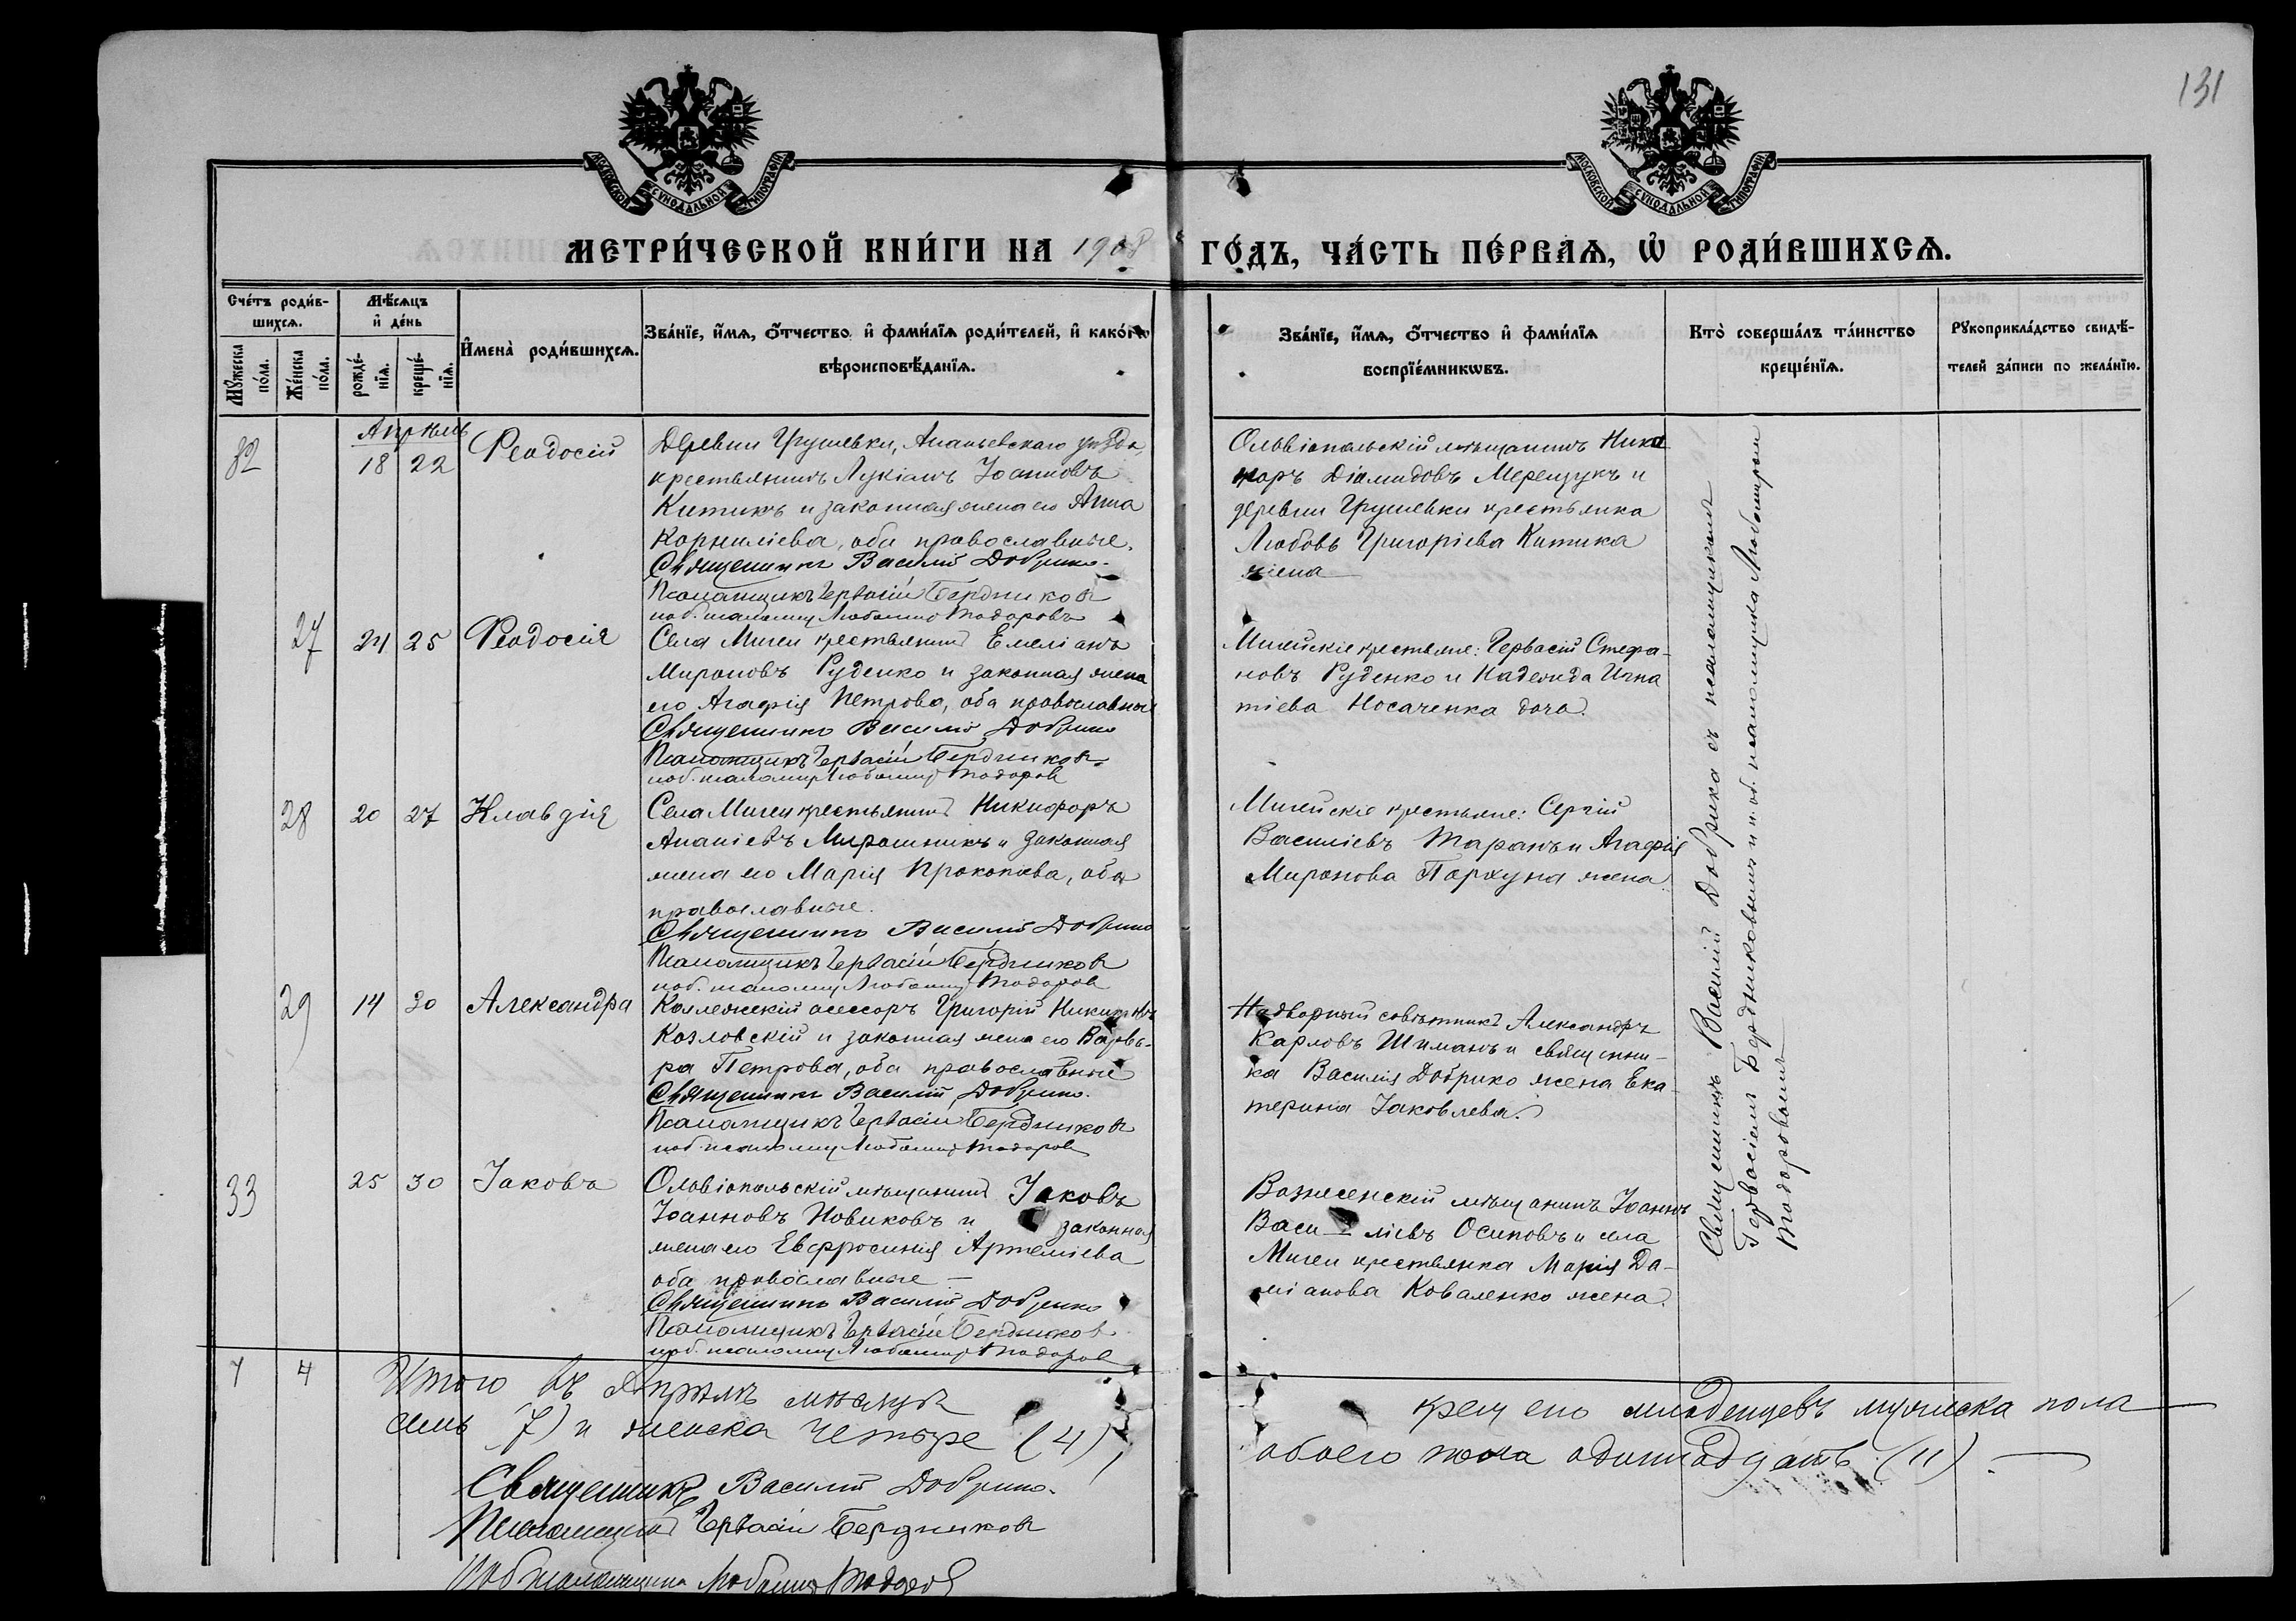 131
МОСКОВСКОЙ СѴНОДАЛЬНОЙ ТИПОГРАФІИ
МОСКОВСКОЙ СѴНОДАЛЬНОЙ ТИПОГРАФІИ
МЕТРИ́ЧЕСКОЙ КНИ́ГИ НА 1908
ГО́ДЪ, ЧА́СТЬ ПЕ́РВАѦ, Ѡ҆ РОДИ́ВШИХСѦ.
Сче́тъ роди́в-
шихсѧ.
Мꙋ́жеска по́ла.
Же́нска по́ла.
Мѣ́сѧцъ
и҆ де́нь
рожде́-
нїѧ.
креще́-
нїѧ.
И҆мена̀ роди́вшихсѧ.
Зва́нїе, и҆́мѧ, ѻ҆́тчество и҆ фами́лїѧ роди́телей, и҆ како́гѡ
вѣроисповѣ́данїѧ.
Зва́нїе, и҆́мѧ, ѻ҆́тчество и҆ фами́лїѧ
воспрїе́мникѡвъ.
Кто̀ соверша́лъ та́инство
креще́нїѧ.
Рꙋкоприкла́дство свидѣ́-
телей за́писи по жела́нїю.
Апрѣль
32
18 22
Ѳеодосій
Деревни Грушевки, Ананьевскаго уѣзда,
крестьянинъ Лукіанъ Іоанновъ
Китикъ и законная жена его Анна
Корниліева, оба православные.
Священникъ Василій Добрико.
Псаломщикъ Гервасій Бердниковъ
и об. псаломщ Любомиръ Тодоровъ
Ольвіопольскій мѣщанинъ Ника
норъ Діамидовъ Мерещукъ и
деревни Грушевки крестьянка
Любовь Григоріева Китика
жена
27
24 25
Ѳеодосія
Села Мигеи крестьянинъ Емеліанъ
Мироновъ Руденко и законная жена
его Агафія Петрова, оба православные
Священникъ Василій Добрико
Псаломщикъ Гервасій Бердниковъ
и об. псаломщ Любомиръ Тодоровъ
Мигейскіе крестьяне: Гервасій Стефа-
новъ Руденко и Надежда Игна
тіева Носаченка дочь.
28
20 27
Клавдія
Села Мигеи крестьянинъ Никифоръ
Ананіевъ Мирошникъ и законная
жена его Марія Прокопіева, оба
православные.
Священникъ Василій Добрико
Псаломщикъ Гервасій Бердниковъ
и об. псаломщ Любомиръ Тодоровъ
Мигейскіе крестьяне: Сергій
Василіевъ Таранъ и Агафія
Миронова Пархуна жена.
29
14 30
Александра
Коллежскій асессоръ Григорій Никитовъ
Козловскій и законная жена его Варва-
ра Петрова, оба православные
Священникъ Василій Добрико.
Псаломщикъ Гервасій Бердниковъ
и об. псаломщ Любомиръ Тодоровъ
Надворный совѣтникъ Александръ
Карловъ Шиманъ и священни-
ка Василія Добрико жена Ека
терина Іаковлева.
33
25 30
Іаковъ
Ольвіопольскій мѣщанинъ Іаковъ
Іоанновъ Новиковъ и законная
жена его Евфросинія Артеміева
оба православные —
Священникъ Василій Добрико
Псаломщикъ Гервасій Бердниковъ
и об. псаломщ Любомиръ Тодоровъ
Вознесенскій мѣщанинъ Іоаннъ
Васи ліевъ Осиповъ и села
Мигеи крестьянка Марія Да-
міанова Коваленко жена.
Священникъ Василій Добрико съ псаломщикомъ
Гервасіемъ Бердниковымъ и и. об. псаломщика Любомиромъ
Тодоровымъ
7 4
Итого въ Апрѣлѣ мѣсяцѣ
крещено младенцевъ мужеска пола
семь (7) и женска четыре (4),
обоего пола одиннадцать (11). —
Священникъ Василій Добрико.
Псаломщикъ Гервасій Бердниковъ
И об псаломщика Любомиръ Тодоровъ